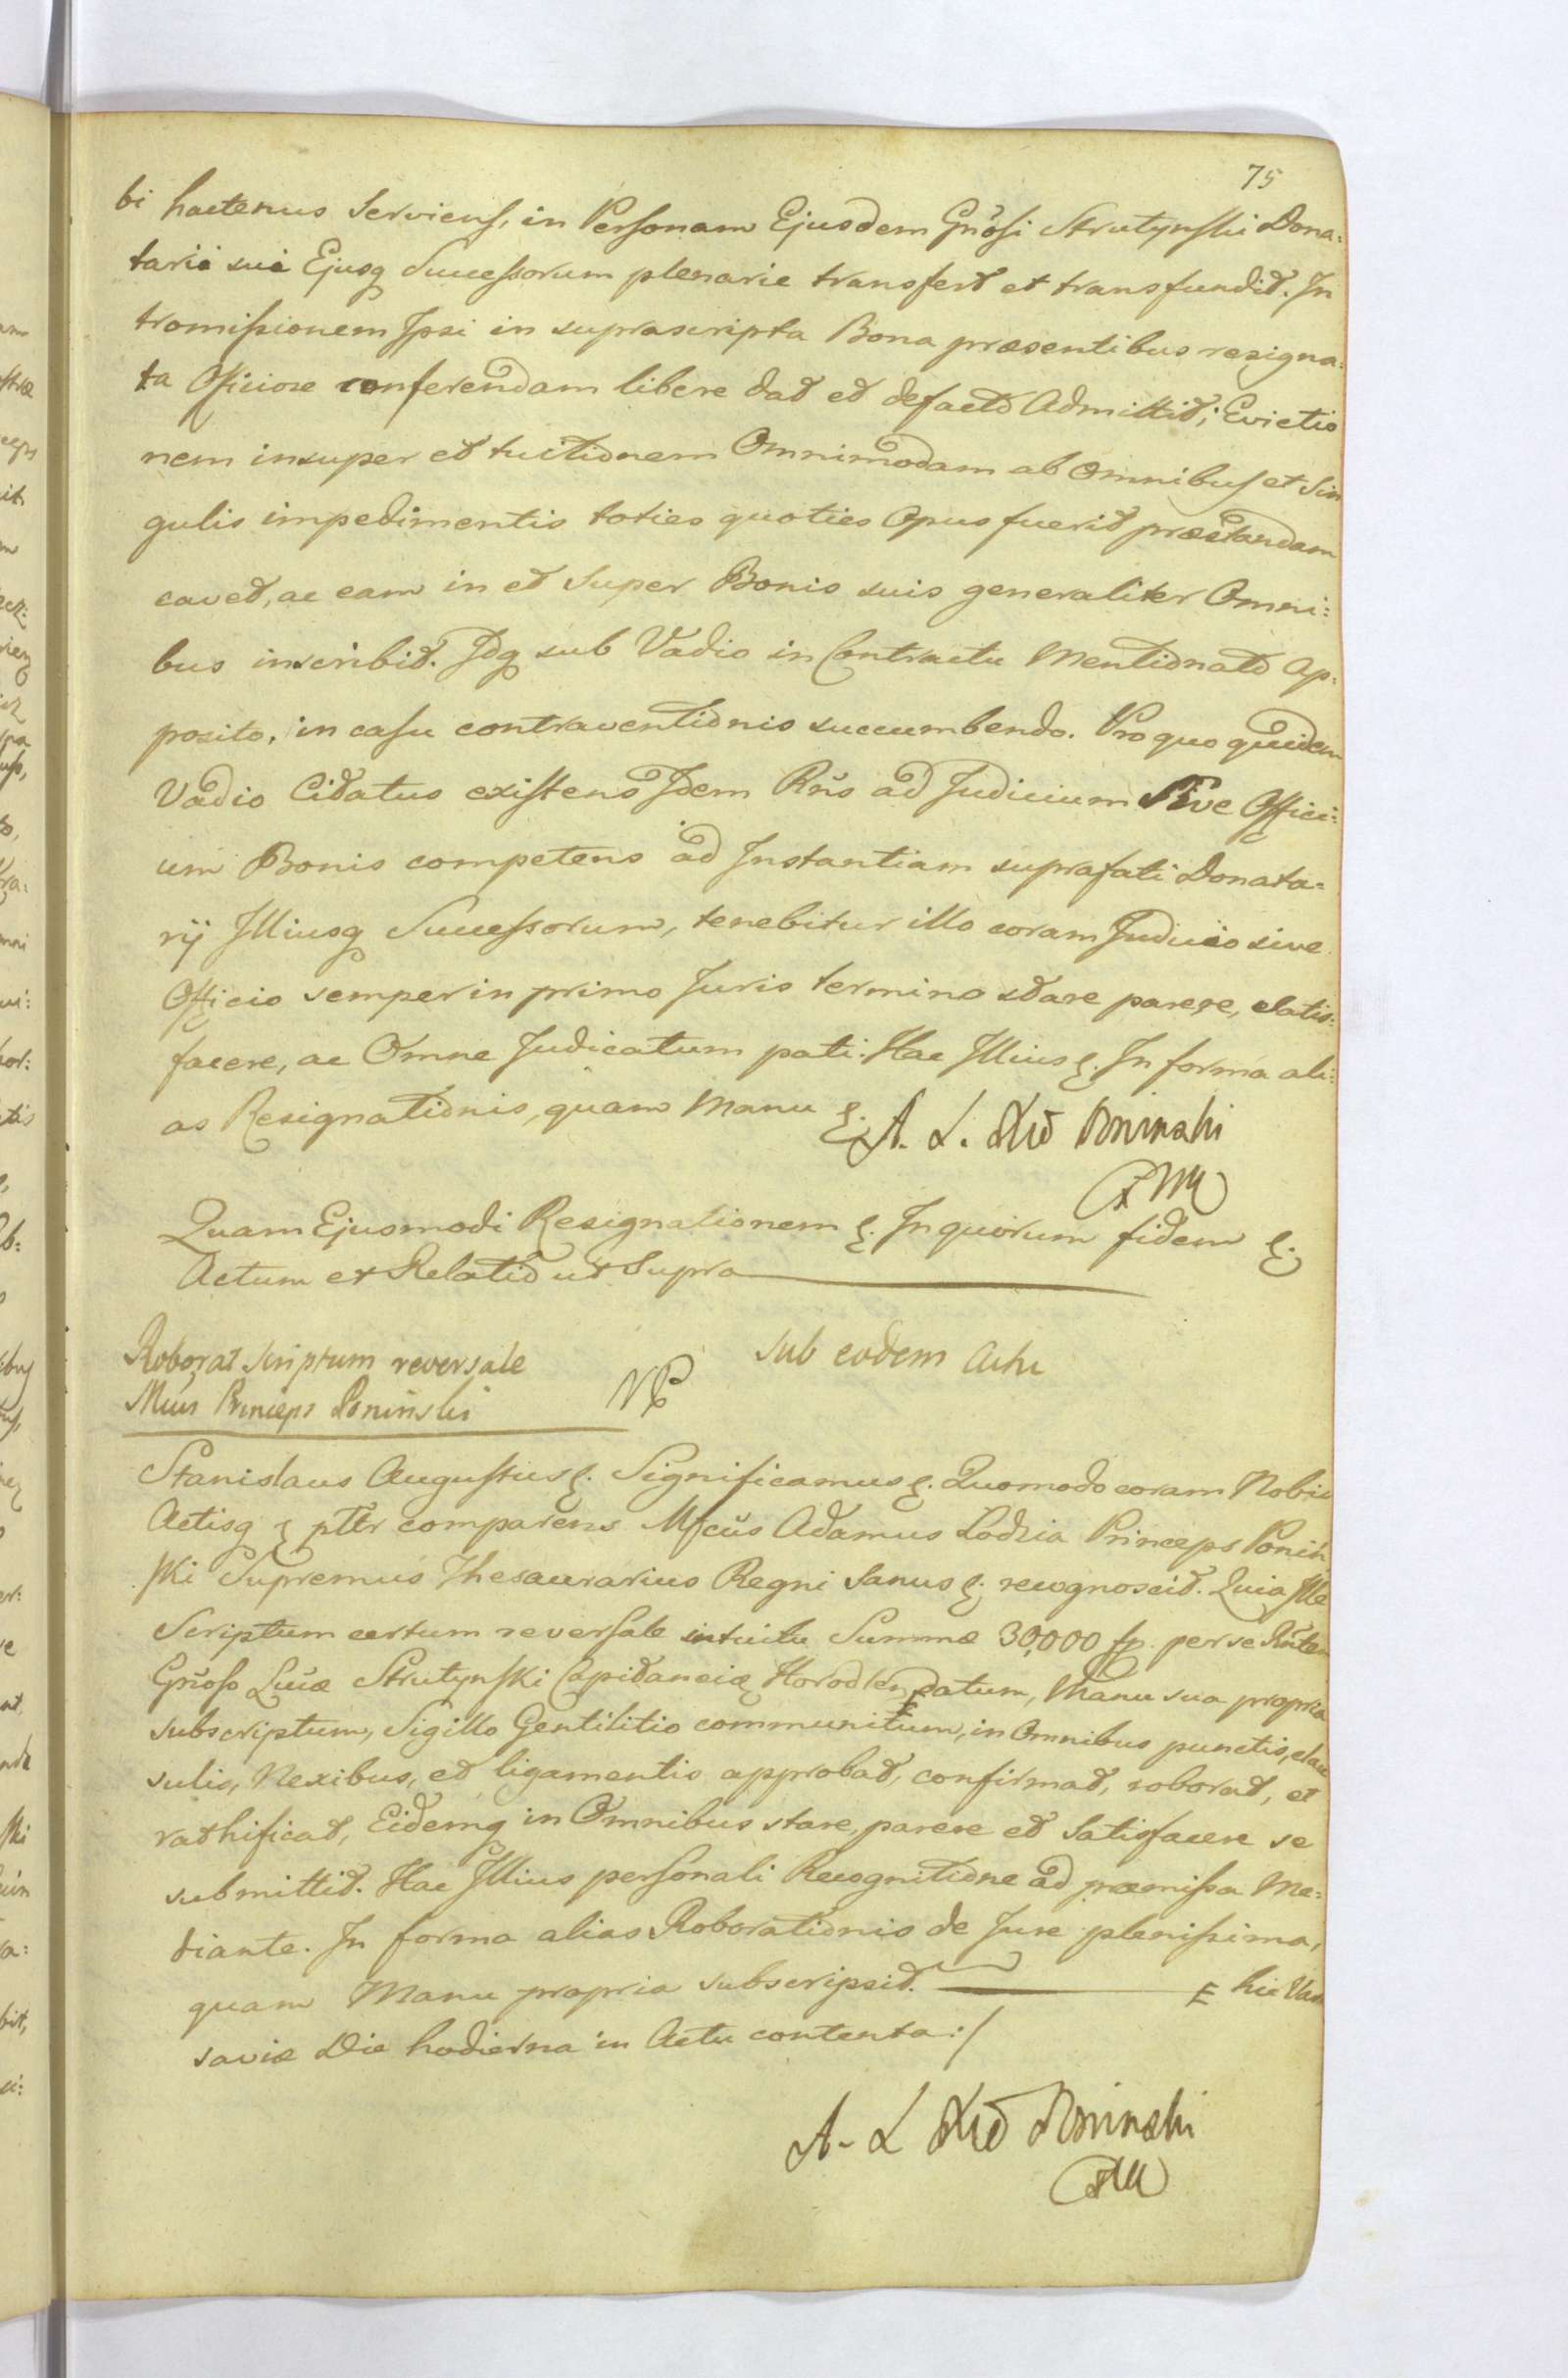 75
bi hactenus Serviens, in Personam Ejusdem Gnosi Strutynski Dona:
tarii sui Ejusq Successorum plenarie transfert et transfundit. In
tromissionem Ipsi in suprascripta Bona præsentibus resigna:
ta Officiose conferendam libere dat et defacto Admittit; Evictio
nem insuper et tuitionem Omnimodam ab Omnibus et Sin
gulis impedimentis toties quoties Opus fuerit præstandam
cavet, ac eam in et Super Bonis suis generaliter Omni:
bus inscribit. Idq sub Vadio in Contractu Mentionato Ap:
posito, in casu contraventionis succumbendo. Pro quo quidem
Vadio Citatus existens Idem Rns ad Judicium Sive Offici:
um Bonis competens ad Instantiam suprafati Donata=
rij Illiusq Successorum, tenebitur illo coram Judicio sive
Officio semper in primo Juris termino stare parere, satis:
facere, ac Omne Judicatum pati. Hac Illius &. In forma ali:
as Resignationis, quam Manu &. A. L. Xże Poninski
mp
Quam Ejusmodi Resignationem &. In quorum fidem &.
Actum et Relatio ut Supra
Roborat scriptum reversale
Mcus Princeps Poninski
Sub eodem Actu
Stanislaus Augustus &. Significamus &. Quomodo coram Nobis
Actisq & pttr comparens Mfcus Adamus Lodzia Princeps Poniń
ski Supremus Thesaurarius Regni Sanus &. recognoscit. Quia Ille
Scriptum certum reversale intuitu Summæ 30,000 fp. per se Rntem
Gnoso Lucæ Strutynski Capitaneiæ Horodlen datum, Manu sua propria
subscriptum, Sigillo Gentilitio communitum, in Omnibus punctis, clau
sulis, Nexibus, et ligamentis approbat, confirmat, roborat, et
rathificat, Eidemq in Omnibus stare, parere et Satisfacere se
submittit. Hac Illius personali Recognitione ad præmissa Me:
diante. In forma alias Roborationis de Jure plenissima,
quam Manu propria subscripsit. hic Var
saviæ Die hodierna in Actu contenta:/
A. L Xże Poninski
mp